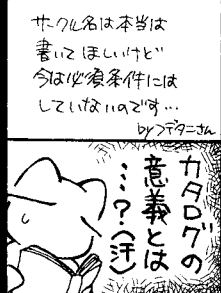 サークル名は本当は
書いてほしいけど
今は必須条件には
していないのです…
byフデタニさん
カタログの
意義とは
…？(汗)